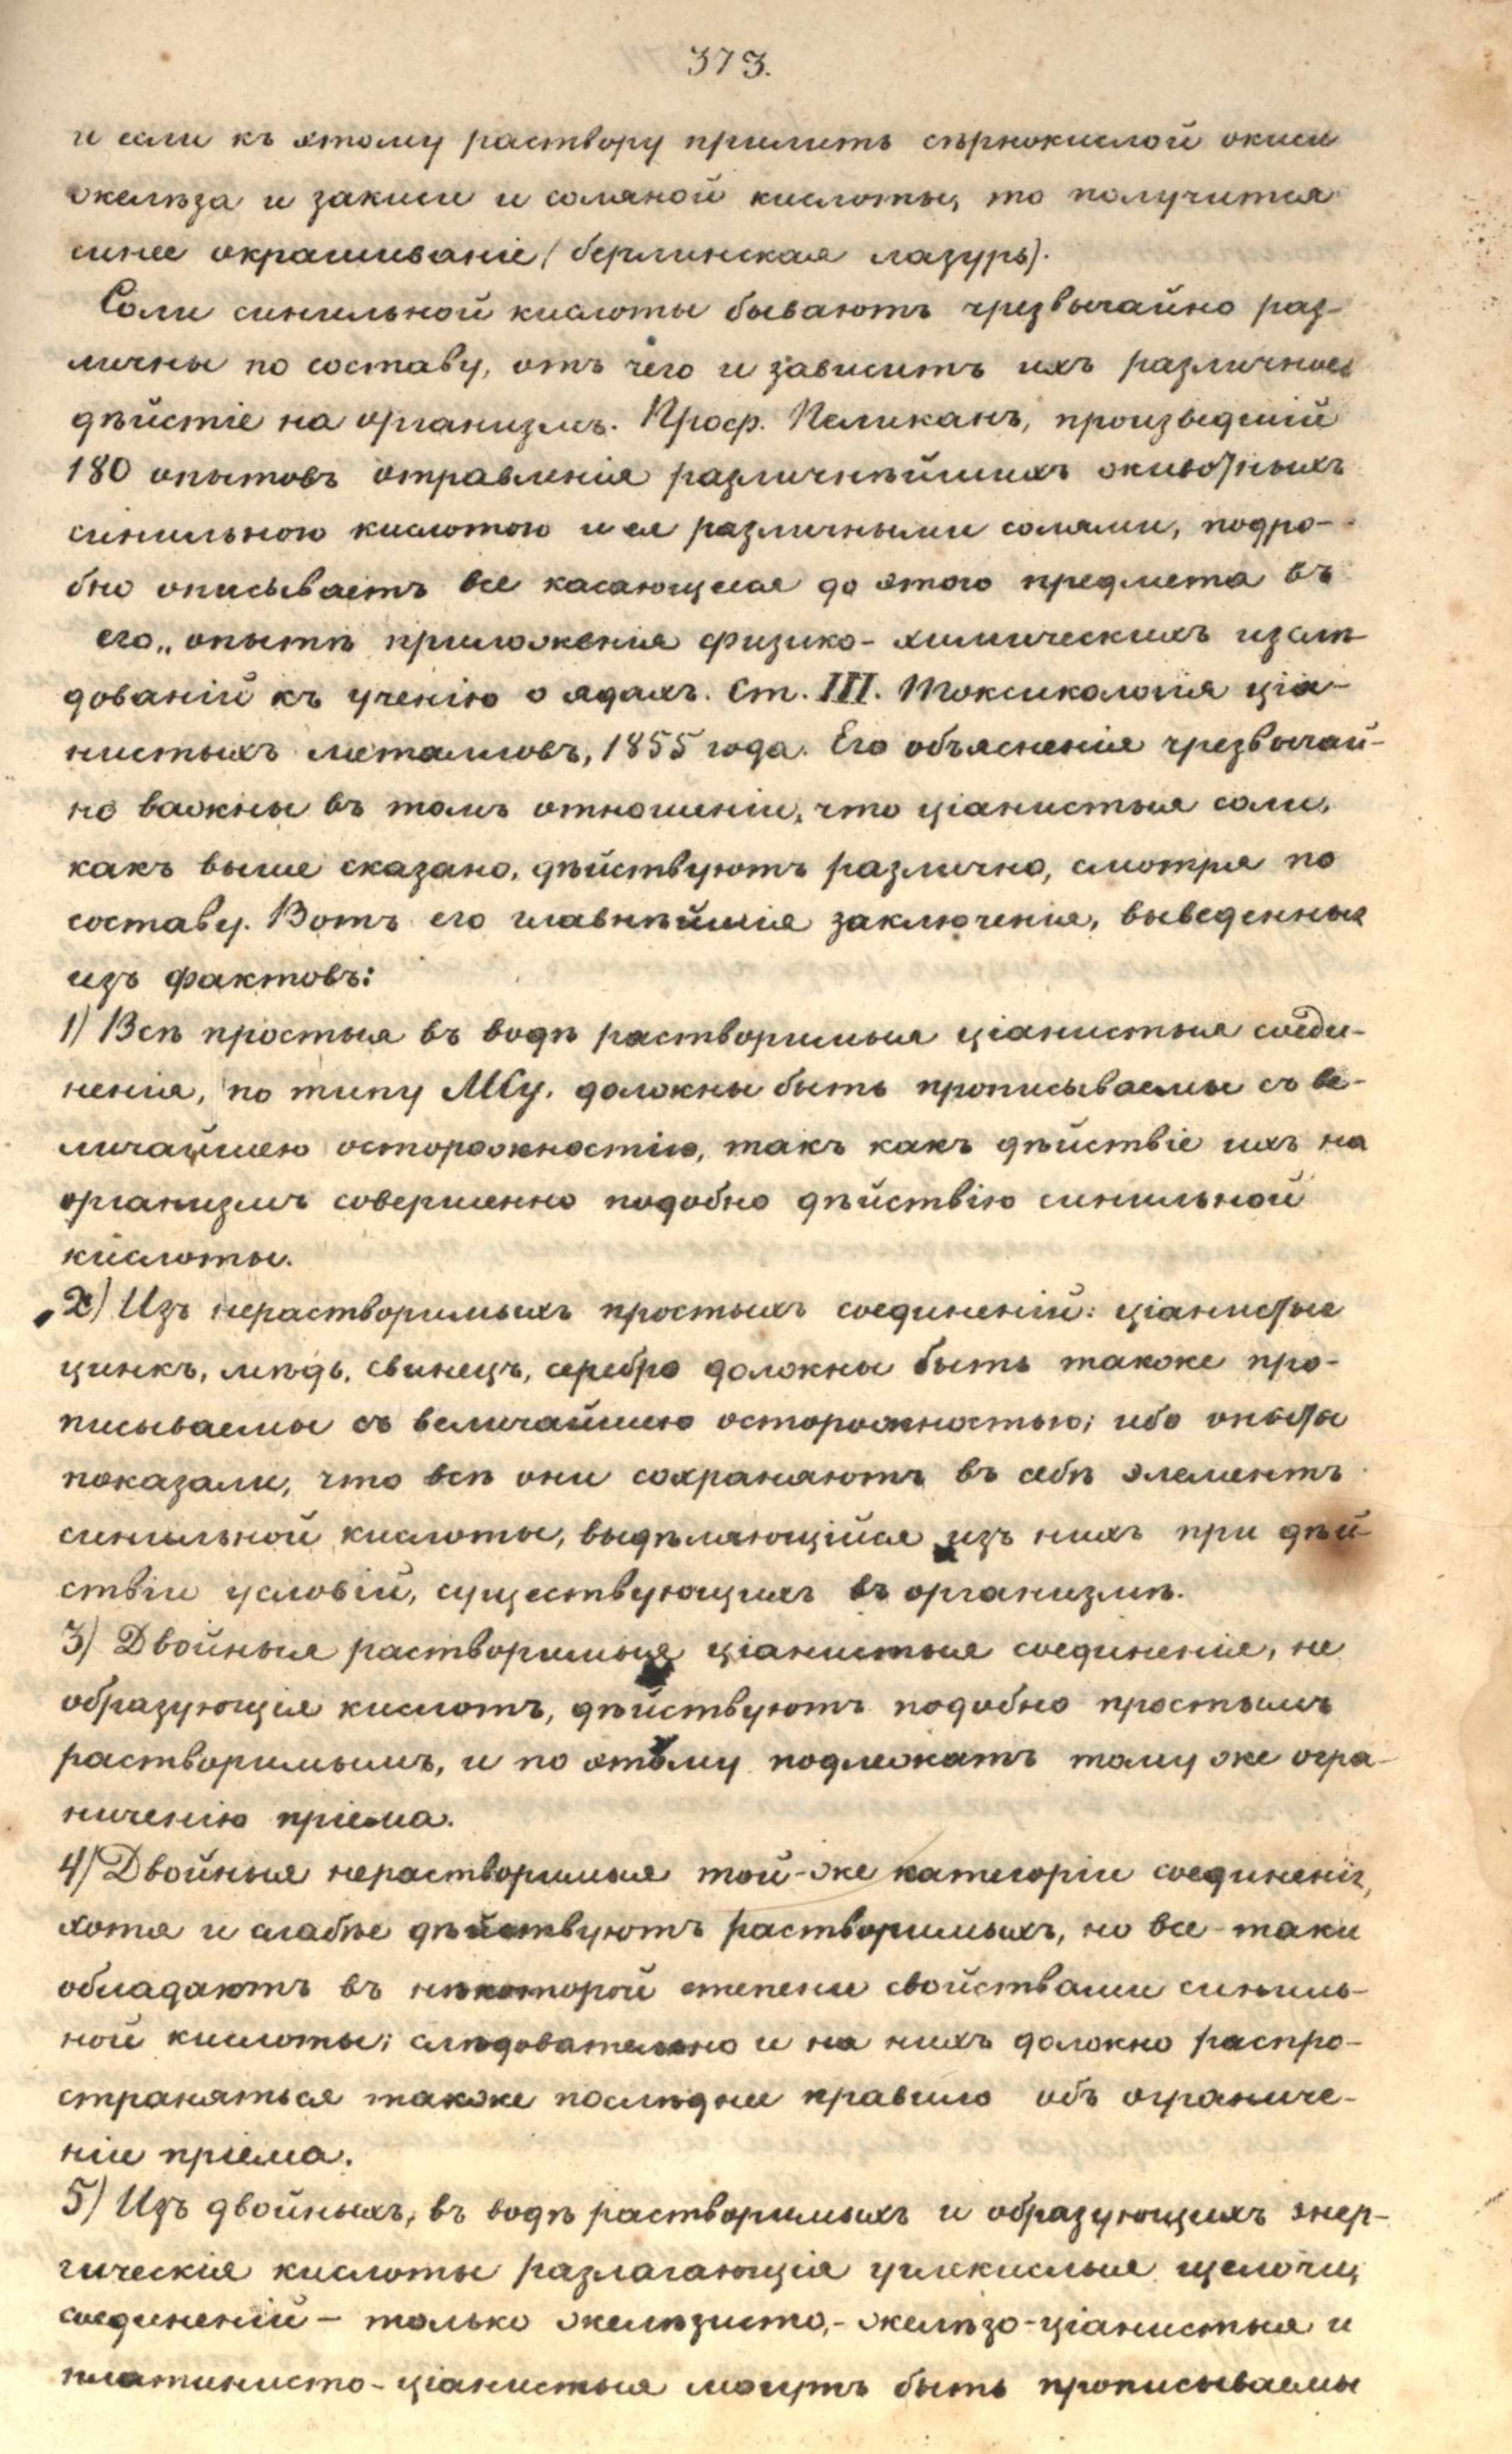 373.
и если къ этому раствору прилить сѣрнокислой окиси
желѣза и закиси и соляной кислоты, то получится
синее окрашиваніе (берлинская лазурь).
Соли синильной кислоты бываютъ чрезвычайно раз-
личны по составу, отъ чего и зависитъ ихъ различное
дѣйстіе на организмъ. Проф. Пеликанъ, произведшій
180 опытовъ отравленія различнѣйшихъ животныхъ
синильною кислотою и ея различными солями, подро-
бно описываетъ все касающееся до этого предмета въ
его „опытѣ приложенія физико-химическихъ изслѣ
дованій къ ученію о ядахъ. Ст. III. Токсикологія ціа-
нистыхъ металловъ, 1855 года. Его объясненія чрезвычай-
но важны въ томъ отношеніи, что ціанистыя соли,
какъ выше сказано, дѣйствуютъ различно, смотря по
составу. Вотъ его главнѣйшія заключенія, выведенныя
изъ фактовъ:
1) Всѣ простыя въ водѣ растворимыя ціанистыя соеди-
ненія, по типу MCy. должны быть прописываемы съ ве-
личайшею осторожностію, такъ какъ дѣйствіе ихъ на
организмъ совершенно подобно дѣйствію синильной
кислоты.
2) Изъ нерастворимыхъ простыхъ соединеній: ціанистые
цинкъ, мѣдь, свинецъ, серебро должны быть также про-
писываемы съ величайшею осторожностью; ибо опыты
показали, что всѣ они сохраняютъ въ себѣ элементъ
синильной кислоты, выдѣляющійся изъ нихъ при дѣй-
ствіи условій, существующихъ въ организмѣ.
3) Двойныя растворимыя ціанистыя соединенія, не
образующія кислотъ, дѣйствуютъ подобно простымъ
растворимымъ, и по этому подлежатъ тому же огра-
ниченію пріема.
4) Двойныя нерастворимыя той-же категоріи соединенія,
хотя и слабѣе дѣйствуютъ растворимыхъ, но все-таки
обладаютъ въ нѣкоторой степени свойствами синиль-
ной кислоты; слѣдовательно и на нихъ должно распро-
страняться также послѣднее правило объ ограниче-
ніи пріема.
5) Изъ двойныхъ, въ водѣ растворимыхъ и образующихъ энер-
гическія кислоты разлагающія углекислыя щелочи,
соединеній – только желѣзисто,- желѣзо-ціанистыя и
платинисто-ціанистыя могутъ быть прописываемы